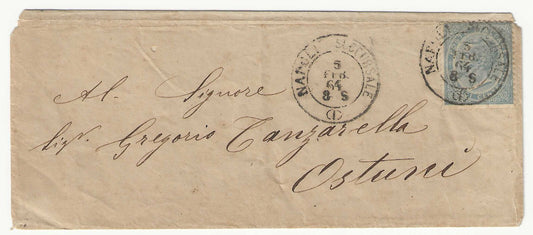 NAPOLI SUCCURSALE
5
FEB.
64
8 S
(1)
NAPOLI SUCCURSALE
5
FEB.
64
8 S
(1)
Al Signore
Sigr. Gregorio Tanzarella
Ostuni